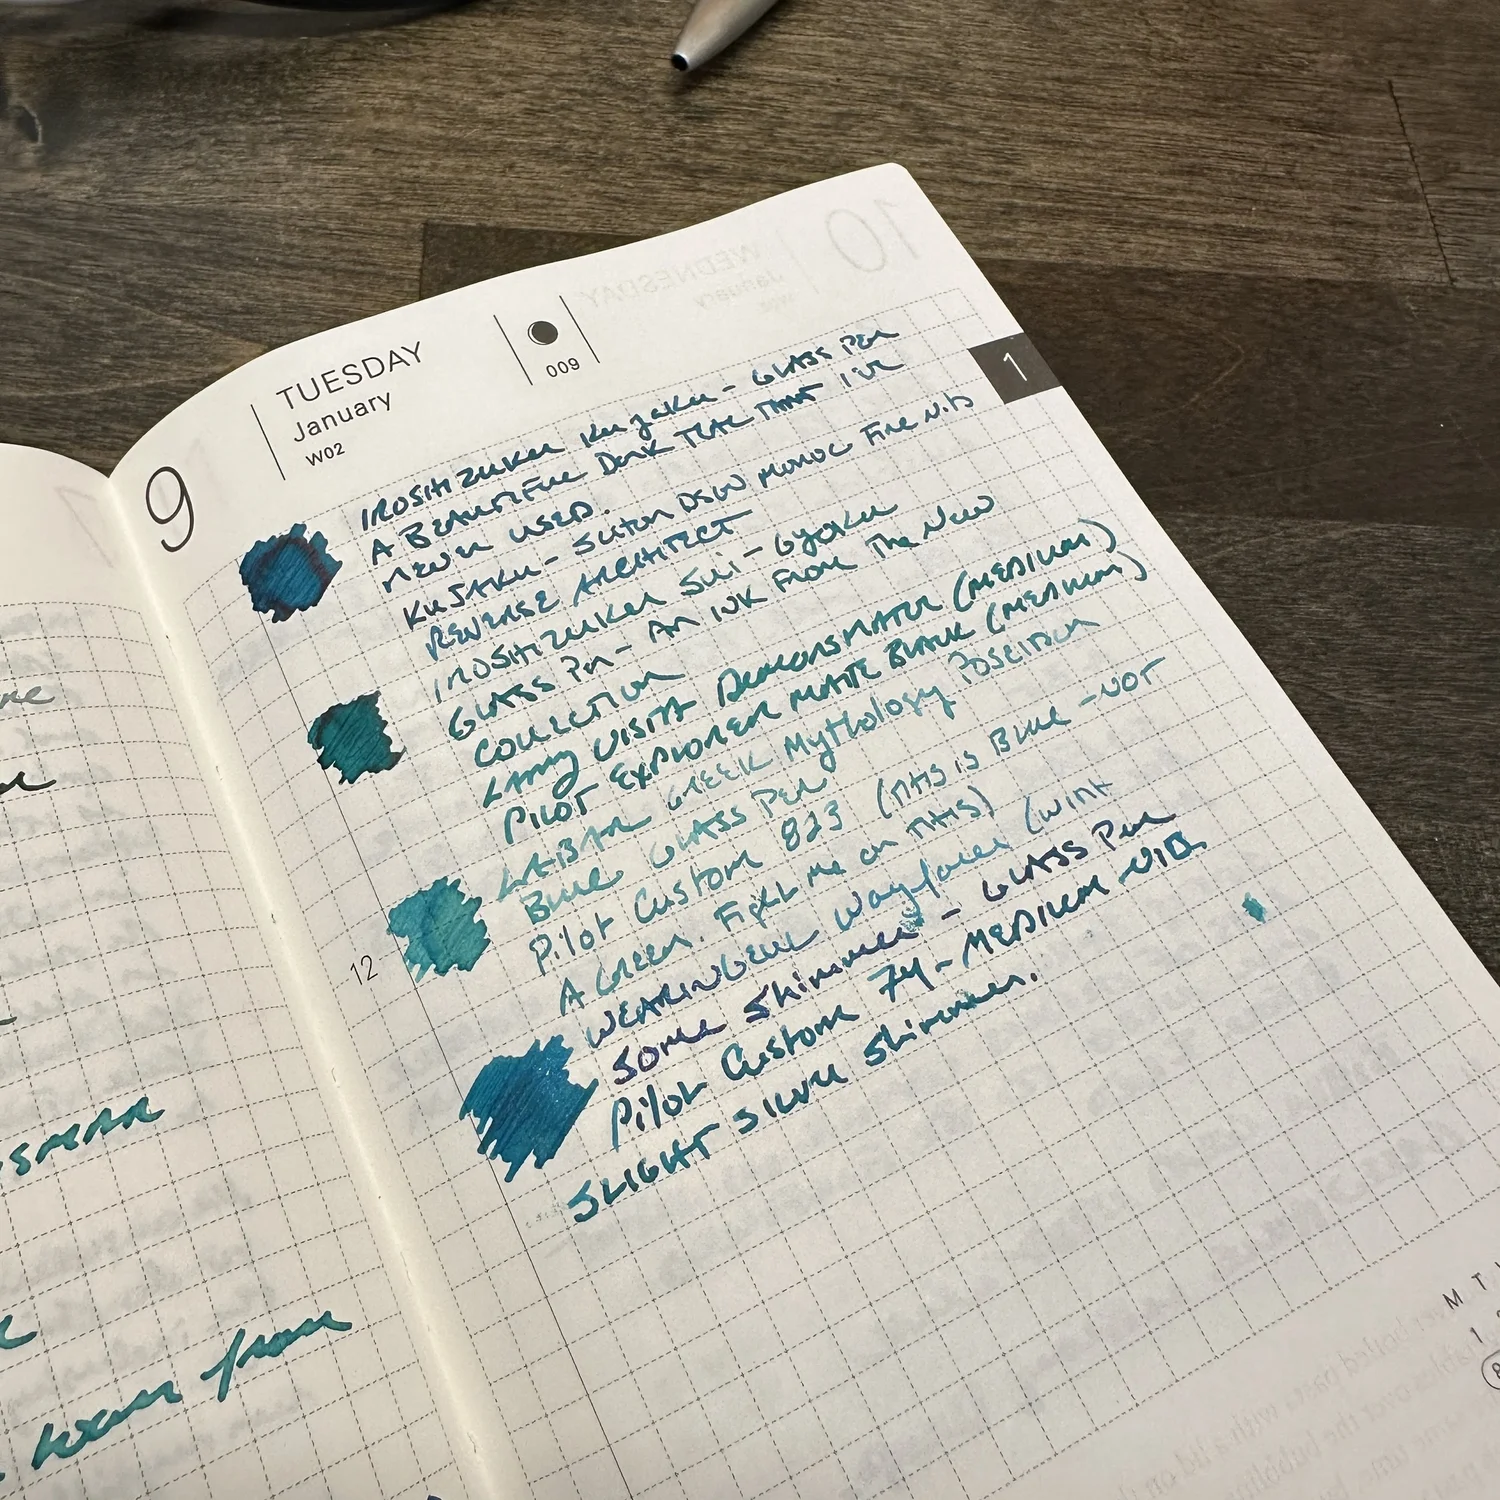 me
SMEAR
wear from
9
TUESDAY
January
W02
009
1
IROSHIZUKU Kujaku - GLASS Pen
A BEAUTIFUL Dark TEAL THAT I'VE
never USED.
KUJAKU - Sutton DSW MONOC Fine Nib
REVERSE ARCHITECT
IROSHIZUKU Sui-Gyoku
GLASS Pen - AN INK FROM The New
COLLECTION
LAMY VISTA DEMONSTRATOR (MEDIUM)
PILOT EXPLORER MATTE BLACK (MEDIUM)
LABAN GREEK Mythology POSEIDON
BLUE GLASS PEN
Pilot Custom 823 (THIS IS BLUE - NOT
A GREEN. Fight me on THIS)
WEARINGEUL Wayfarer (WITH
SOME Shimmer - GLASS Pen
Pilot Custom 74 - MEDIUM NIB
SLIGHT SILVER Shimmer.
12
WEDNESDAY
January
W02
10
M T
1
8